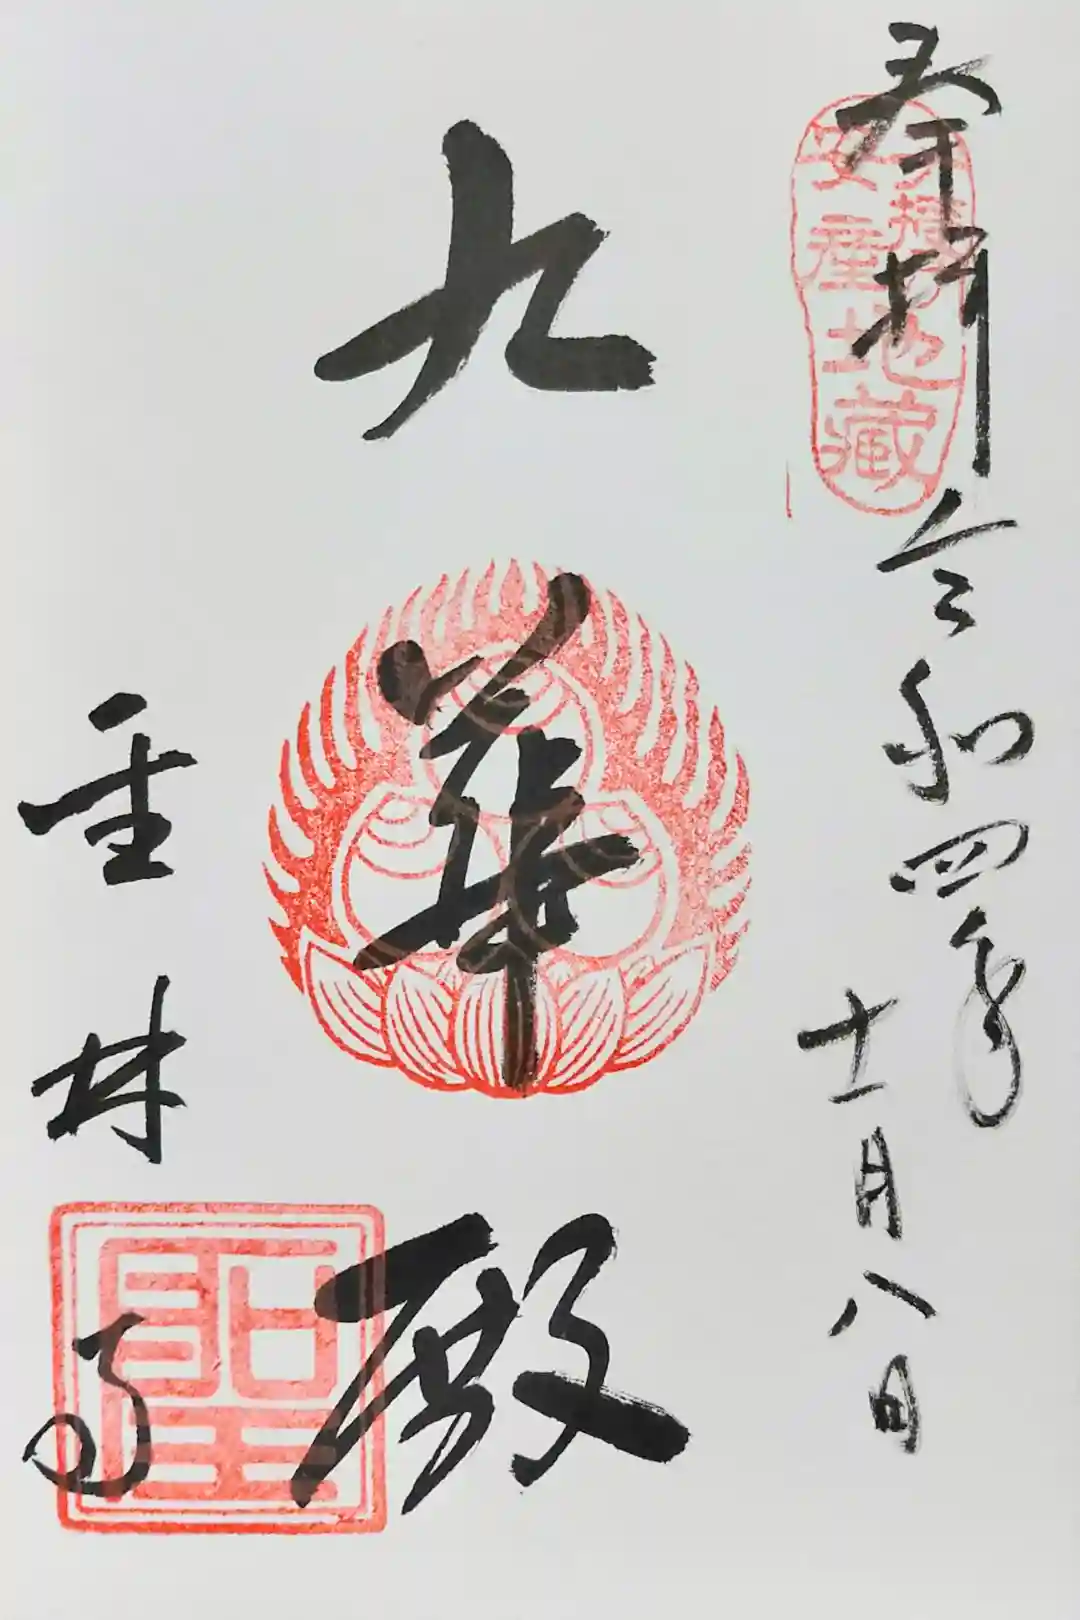 奉拝
令和四年
十一月八日
子授
安産
地藏
九華殿
聖林寺
聖